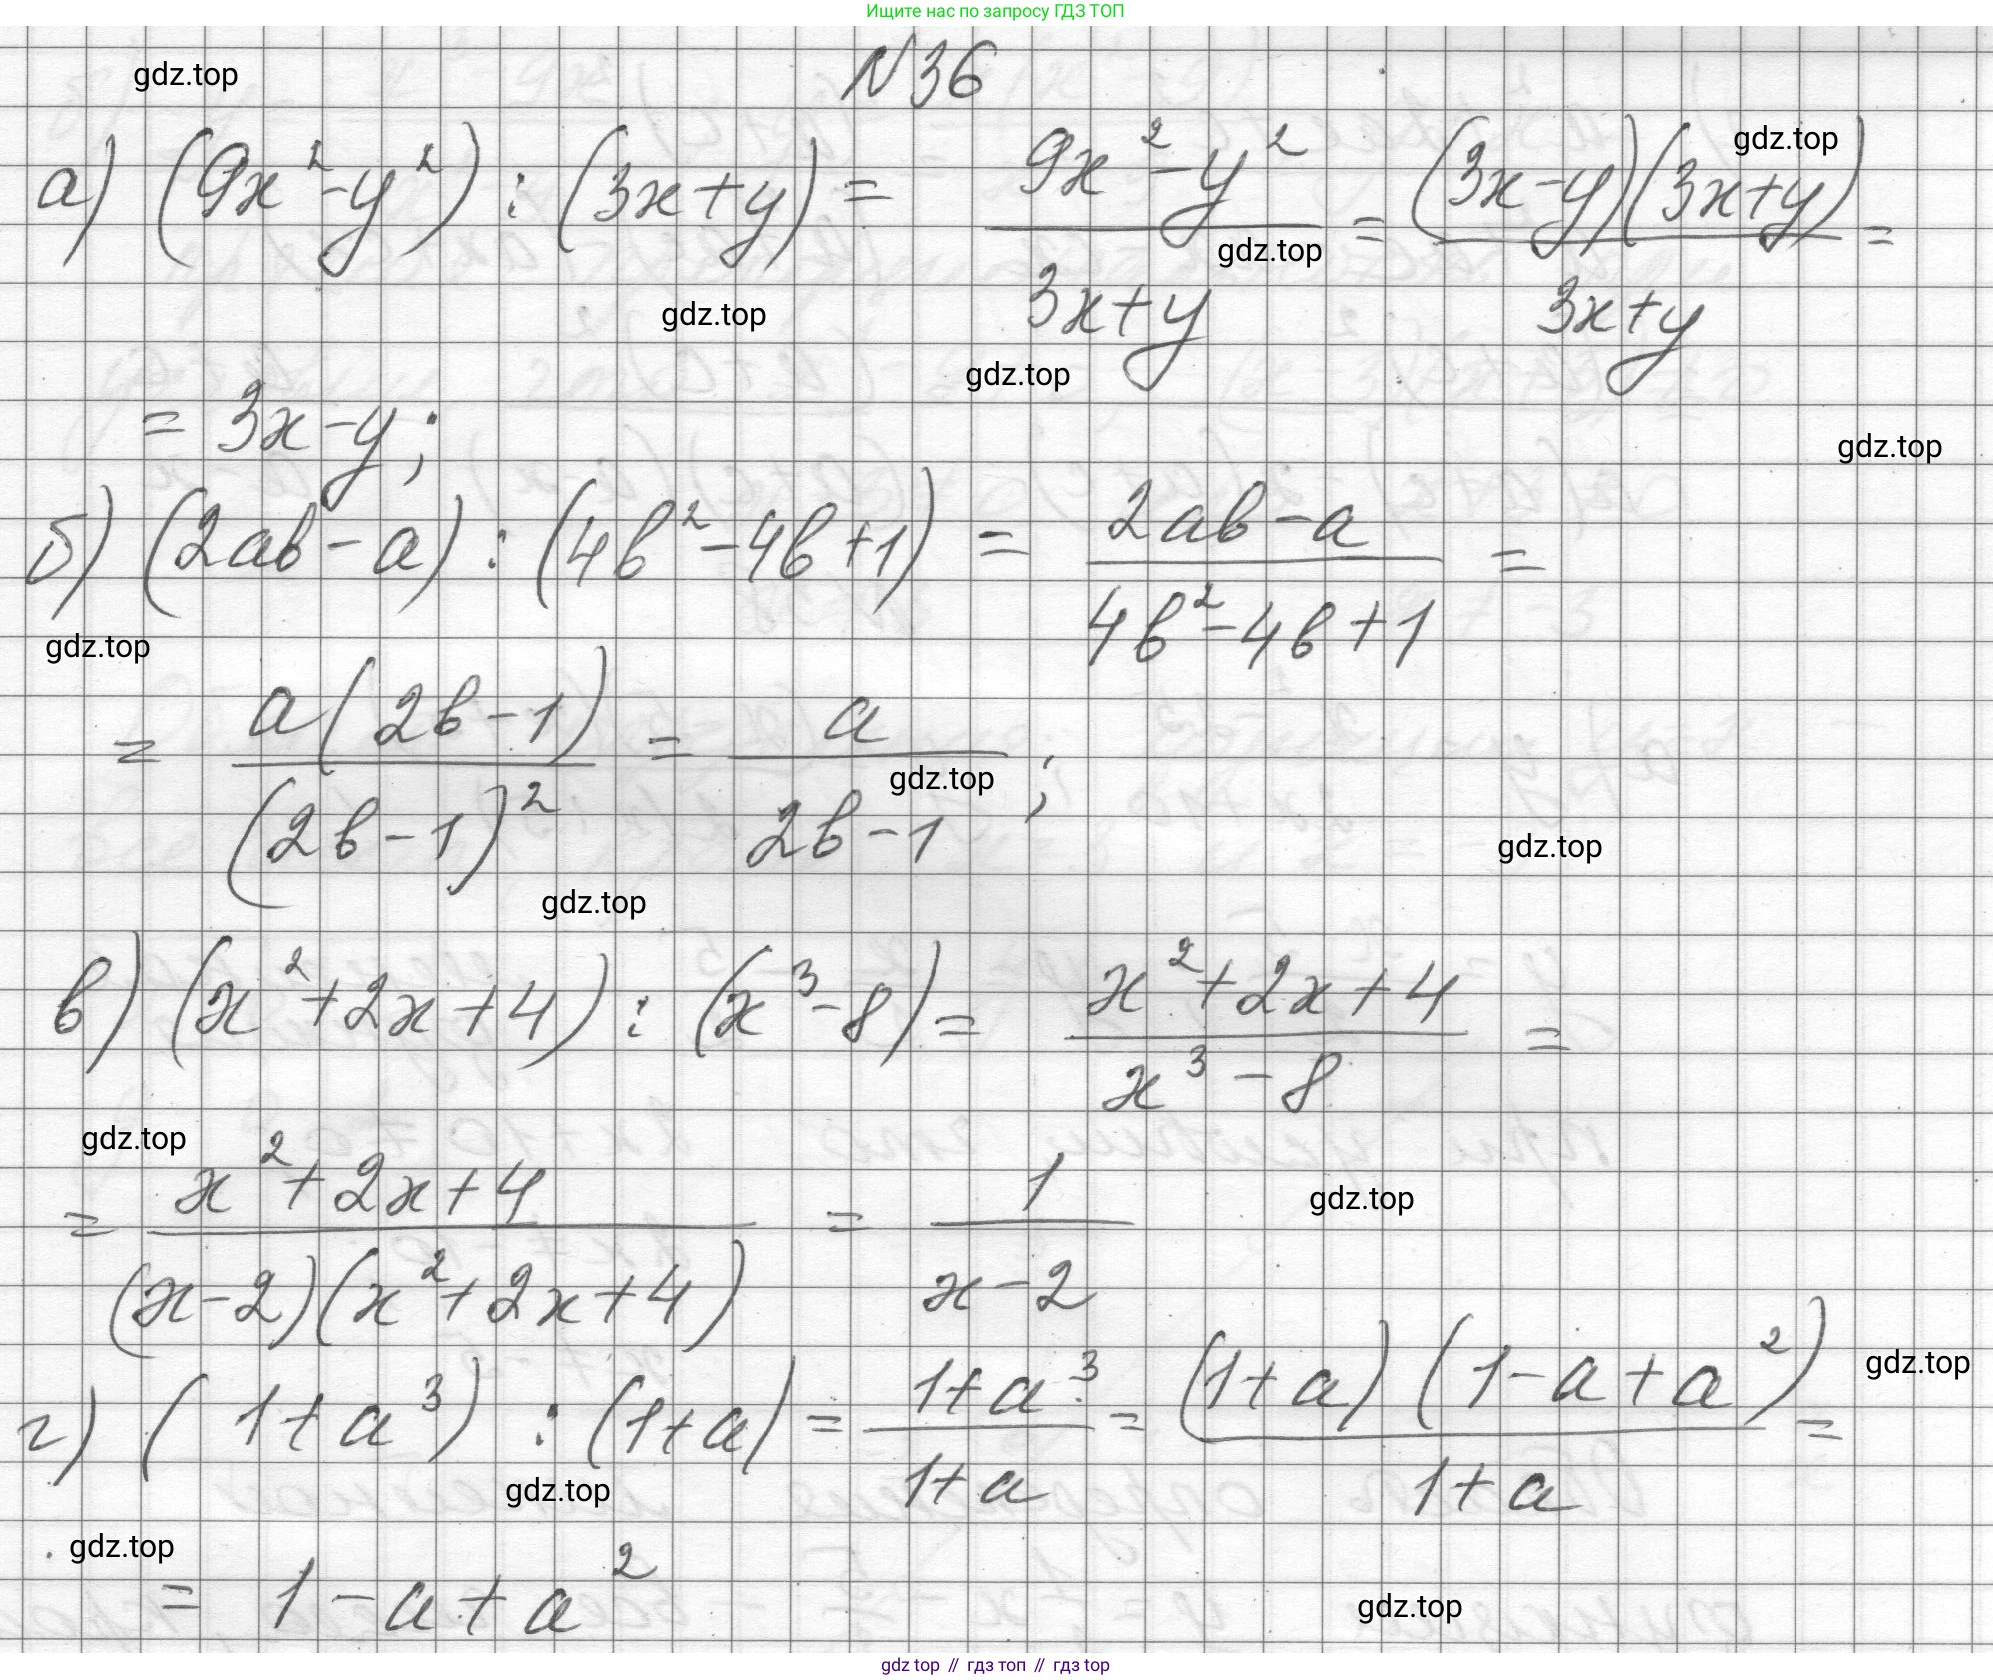 Ищите нас по запросу ГДЗ ТОП
gdz.top
N36
а) (9x²-y²) : (3x+y) = (9x²-y²)/(3x+y) = ((3x-y)(3x+y))/(3x+y) =
gdz.top
gdz.top
gdz.top
gdz.top
= 3x-y;
gdz.top
б) (2ab-a) : (4b²-4b+1) = (2ab-a)/(4b²-4b+1) =
gdz.top
= (a(2b-1))/((2b-1)²) = a/(2b-1);
gdz.top
gdz.top
gdz.top
в) (x²+2x+4) : (x³-8) = (x²+2x+4)/(x³-8) =
gdz.top
gdz.top
= (x²+2x+4)/((x-2)(x²+2x+4)) = 1/(x-2)
г) (1+a³) : (1+a) = (1+a³)/(1+a) = ((1+a)(1-a+a²))/(1+a) =
gdz.top
gdz.top
gdz.top
= 1-a+a²
gdz.top
gdz top // гдз топ // гдз top